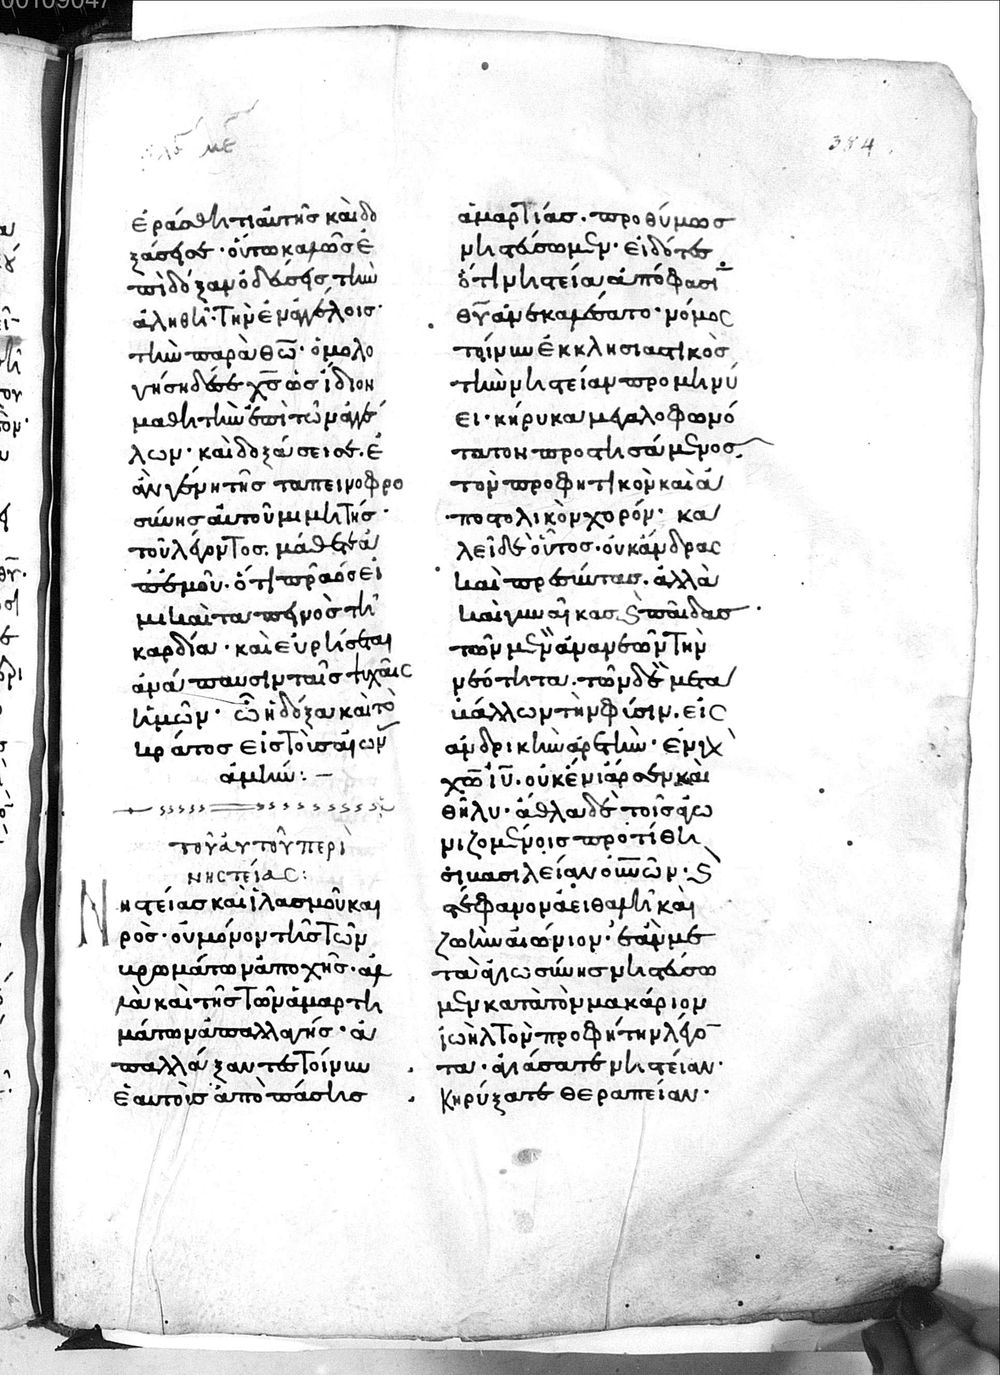 00109047
384
ἐράσθητι αὐτῆς καὶ δο
ξάσῃσε· οὕτω καλῶς ἐ
πιδόξαν ὁδεύσῃς τὴν
ἀληθῆ· τὴν ἐν ἀγγέλοις·
τὴν παρὰ θῶ· ὁμολο
γήσῃ δέσε χς ὡς ἴδιον
μαθητὴν ἐπὶ τῶν ἀγγέ
λων· καὶ δοξάσει σε· ἐ
ὰν γένῃ τῆς ταπεινοφρο
σύνης αὐτοῦ μιμητής·
τοῦ λέγοντος· μάθετε ἀ
πἐμοῦ· ὅτι πρᾶος εἰ
μι καὶ ταπεινὸς τῆ
καρδία· καὶ εὑρήσεται
ἀνάπαυσιν ταῖς ψυχαῖς
ἡμῶν· ὧ ἡ δόξα καὶ τὸ
κράτος εἰς τοὺς αἰών
ἀμήν:–
τοῦ αὐτοῦ περὶ
νηστείας:
Νηστείας καὶ ἱλασμοῦ και
ρὸς· οὐ μόνον τῆς τῶν
βρωμάτων ἀποχῆς· ἀλ
λὰ καὶ τῆς τῶν ἁμαρτη
μάτων ἀπαλλαγῆς· ἀ
παλλάξαντες τοίνυν
ἑαυτοὺς ἀπὸ πάσης
ἁμαρτίας· προθύμως
νηστεύσωμεν· εἰδότες
ὅτι νηστεία ἀπόφασιν
θῦ ἀνεκαλέσατο· νόμος
τοίνυν ἐκκλησιαστικὸς
τὴν νηστείαν προμηνύ
ει· κήρυκα μεγαλοφωνό
τατον προστησάμενος
τὸν προφητικὸν καὶ ἀ
ποστολικὸν χορόν· κα
λεῖ δὲ οὗτος· οὐκ ἄνδρας
καὶ πρεσύτας· ἀλλὰ
καὶ γυναῖκας ϗ παῖδας
τῶν μὲν ἀνανεῶν τὴν
νεότητα· τῶν δὲ μετα
βάλλων τὴν φύσιν· εἰς
ἀνδρικὴν ἀρετὴν· ἐν χ
χῶ ἰῦ· οὐκ ἔνι ἄρσεν καὶ
θῆλυ· ἆθλα δὲ τοῖς ἀγω
νιζομένοις προτίθη
σι βασιλείαν οὐνῶν· ϗ
στέφανον ἀειθαλῆ καὶ
ζωὴν αἰώνιον· ἐὰν με
τὰ ἁγιωσύνης νηστεύσω
μεν κατὰ τὸν μακάριον
ἰωὴλ τὸν προφήτην λέγο
τα· ἁγιάσατε νηστείαν·
κηρύξατε θεραπείαν·